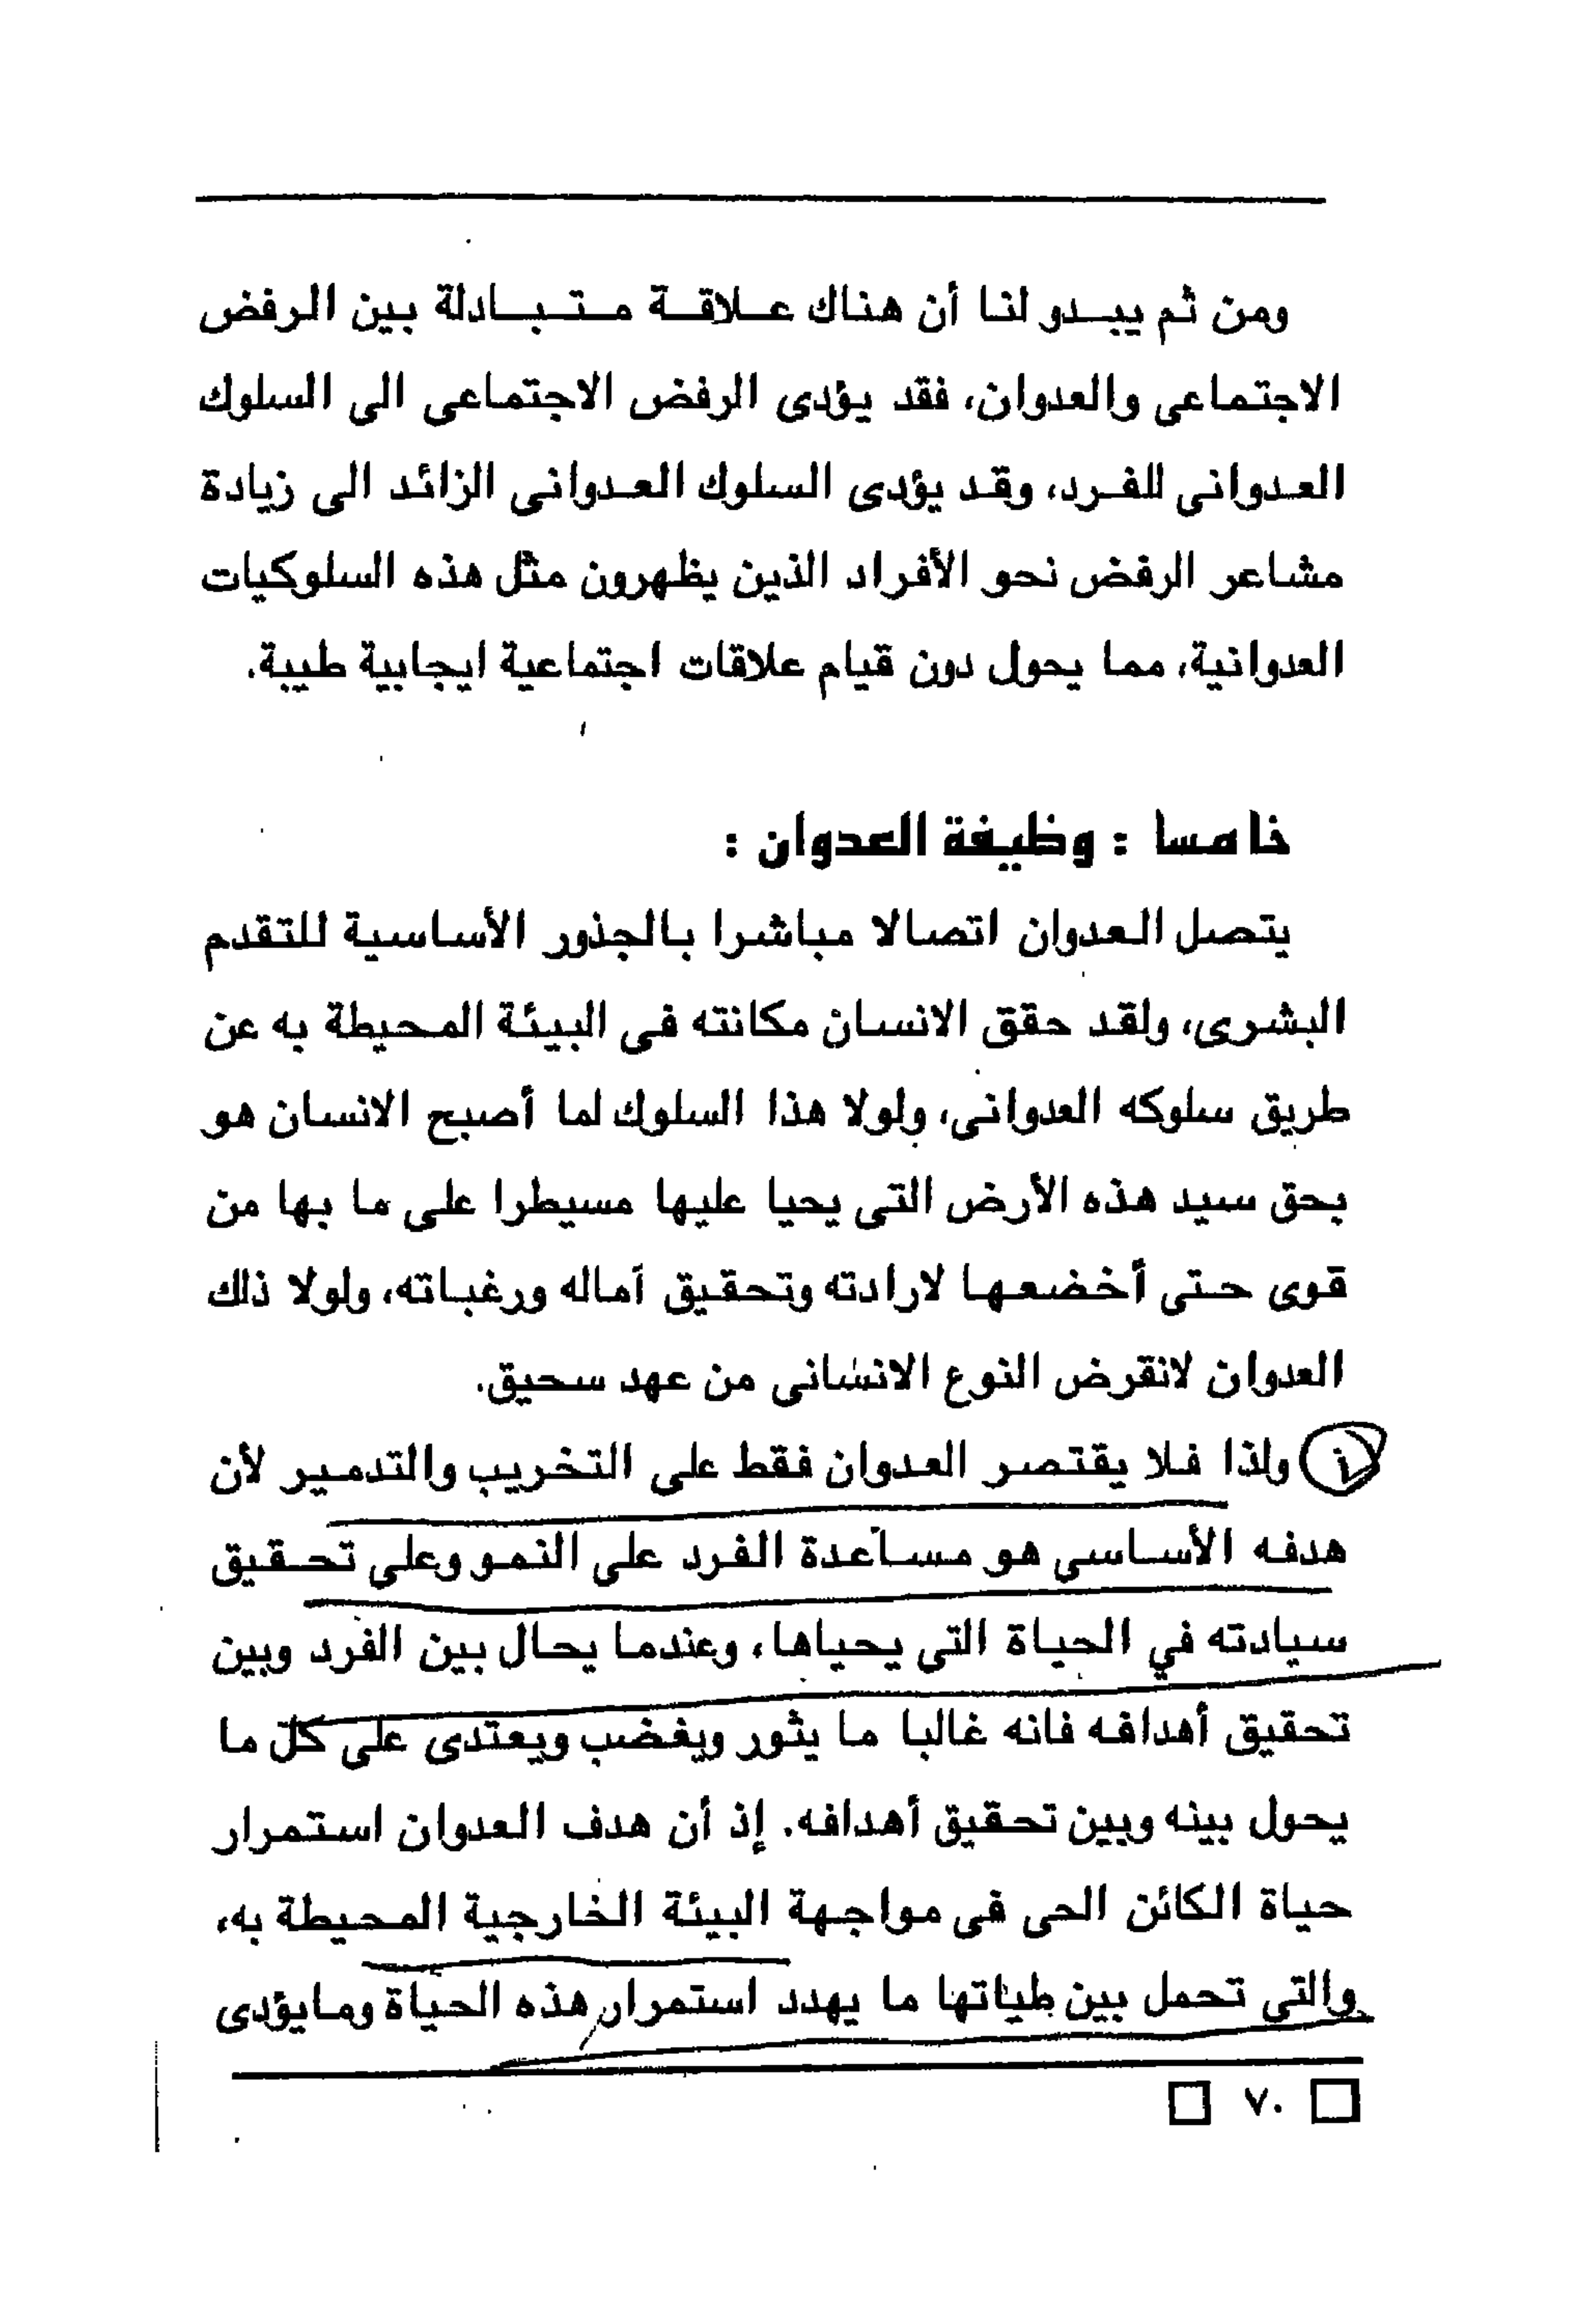 ومن ثم يبدو لنا أن هناك علاقة متبادلة بين الرفض
الاجتماعى والعدوان، فقد يؤدى الرفض الاجتماعى الى السلوك
العدوانى للفرد، وقد يؤدى السلوك العدوانى الزائد الى زيادة
مشاعر الرفض نحو الأفراد الذين يظهرون مثل هذه السلوكيات
العدوانية، مما يحول دون قيام علاقات اجتماعية ايجابية طيبة.
خامسا : وظيفة العدوان :
يتصل العدوان اتصالا مباشرا بالجذور الأساسية للتقدم
البشرى، ولقد حقق الانسان مكانته فى البيئة المحيطة به عن
طريق سلوكه العدوانى، ولولا هذا السلوك لما أصبح الانسان هو
بحق سيد هذه الأرض التى يحيا عليها مسيطرا على ما بها من
قوى حتى أخضعها لارادته وتحقيق آماله ورغباته، ولولا ذلك
العدوان لانقرض النوع الانسانى من عهد سحيق.
ولذا فلا يقتصر العدوان فقط على التخريب والتدمير لأن
هدفه الأساسى هو مساعدة الفرد على النمو وعلى تحقيق
سيادته في الحياة التى يحياها، وعندما يحال بين الفرد وبين
تحقيق أهدافه فانه غالبا ما يثور ويغضب ويعتدى على كل ما
يحول بينه وبين تحقيق أهدافه. إذ أن هدف العدوان استمرار
حياة الكائن الحى فى مواجهة البيئة الخارجية المحيطة به،
والتى تحمل بين طياتها ما يهدد استمرار هذه الحياة ومايؤدى
٧٠